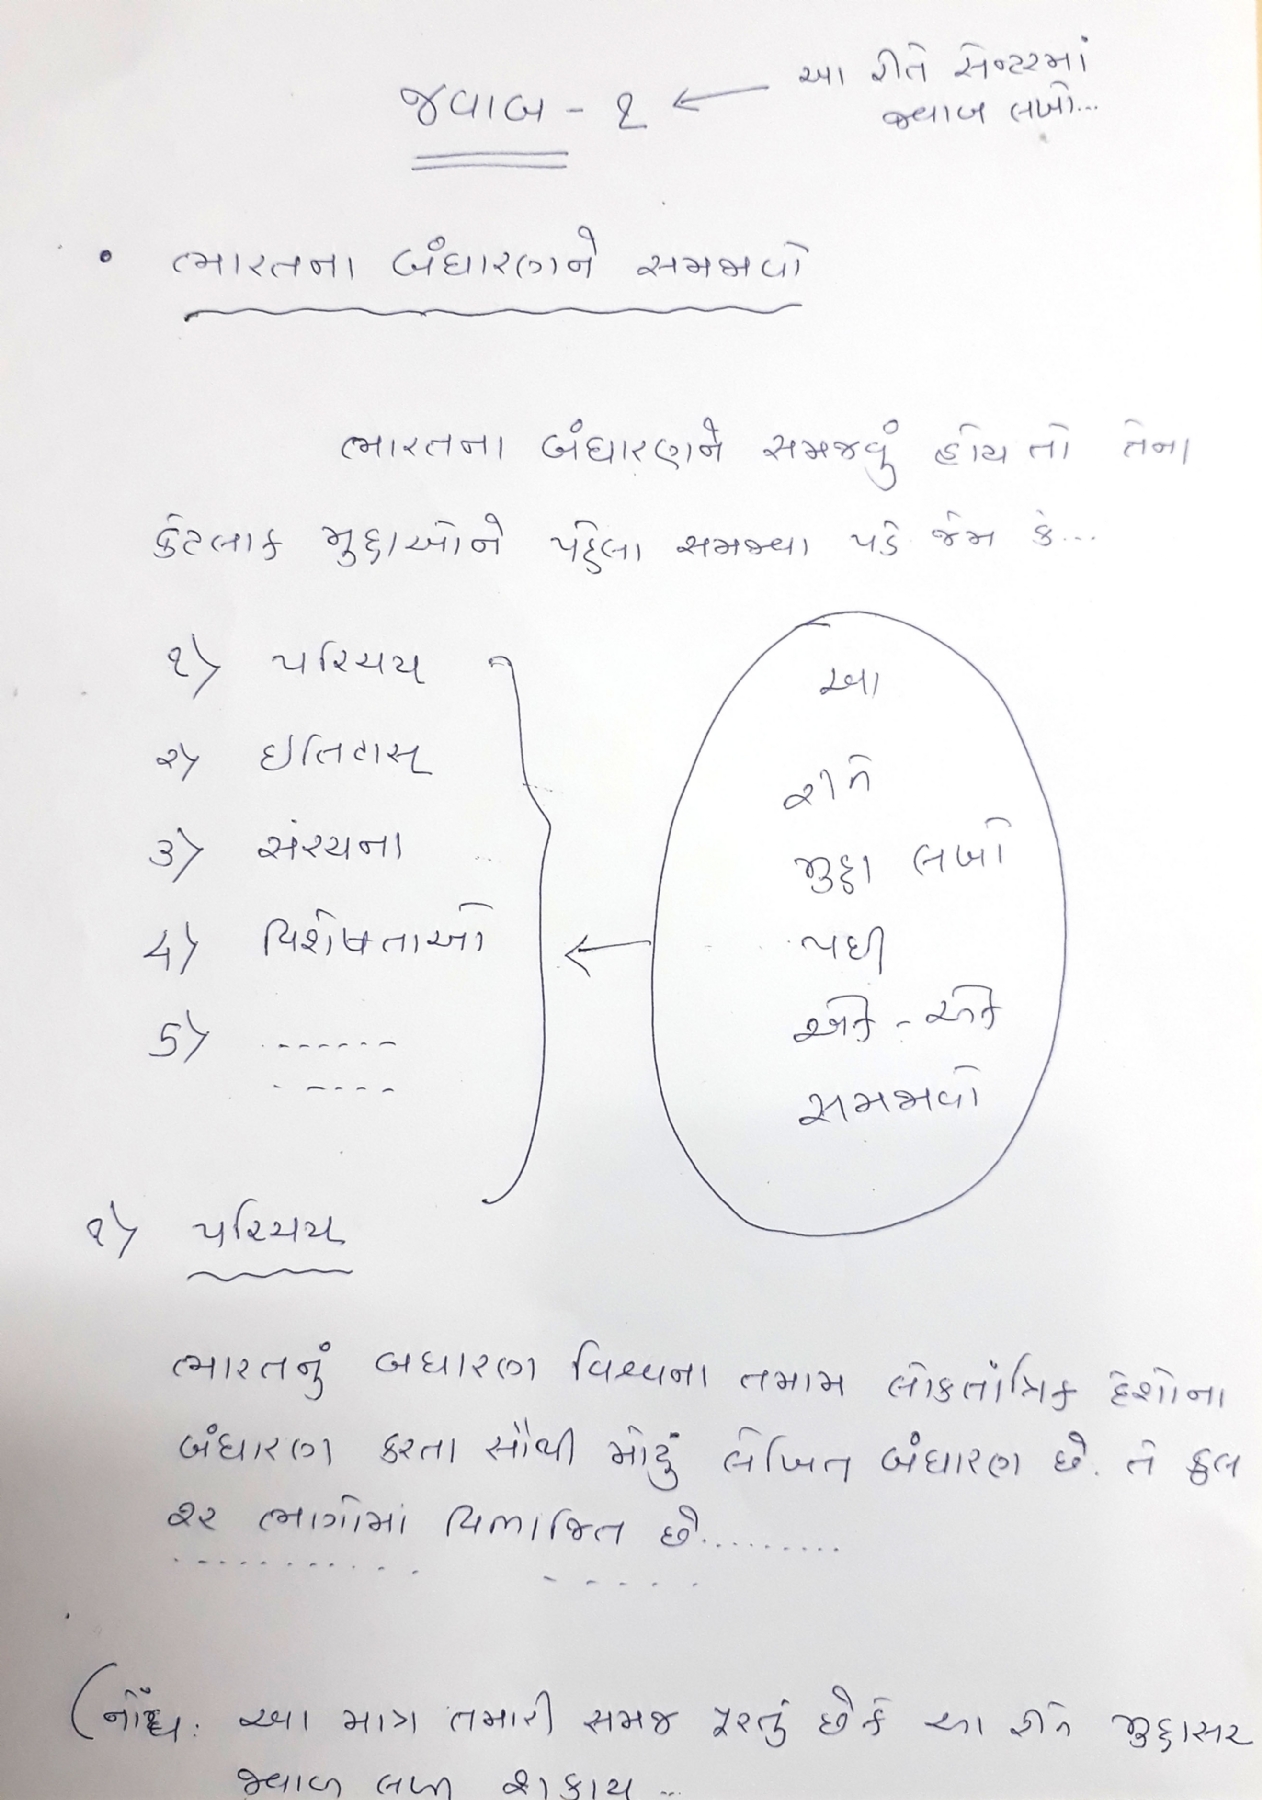 જવાબ - ૧
આ રીતે સેન્ટરમાં
જવાબ લખો...
• ભારતના બંધારણને સમજાવો
ભારતના બંધારણને સમજવું હોય તો તેના
કેટલાક મુદ્દાઓને પહેલા સમજવા પડે જેમ કે...
૧) પરિચય
૨) ઇતિહાસ
૩) સંરચના
4) વિશેષતાઓ
5) .......
- - - - -
આ
રીતે
મુદ્દા લખો
પછી
એક - એક
સમજાવો
૧) પરિચય
ભારતનું બધારણ વિશ્વના તમામ લોકતાંત્રિક દેશોના
બંધારણ કરતા સૌથી મોટું લેખિત બંધારણ છે. તે કુલ
૨૨ ભાગોમાં વિભાજિત છે.........
(નોંધ: આ માત્ર તમારી સમજ પૂરતું છે કે આ રીતે મુદ્દાસર
જવાબ લખી શકાય...